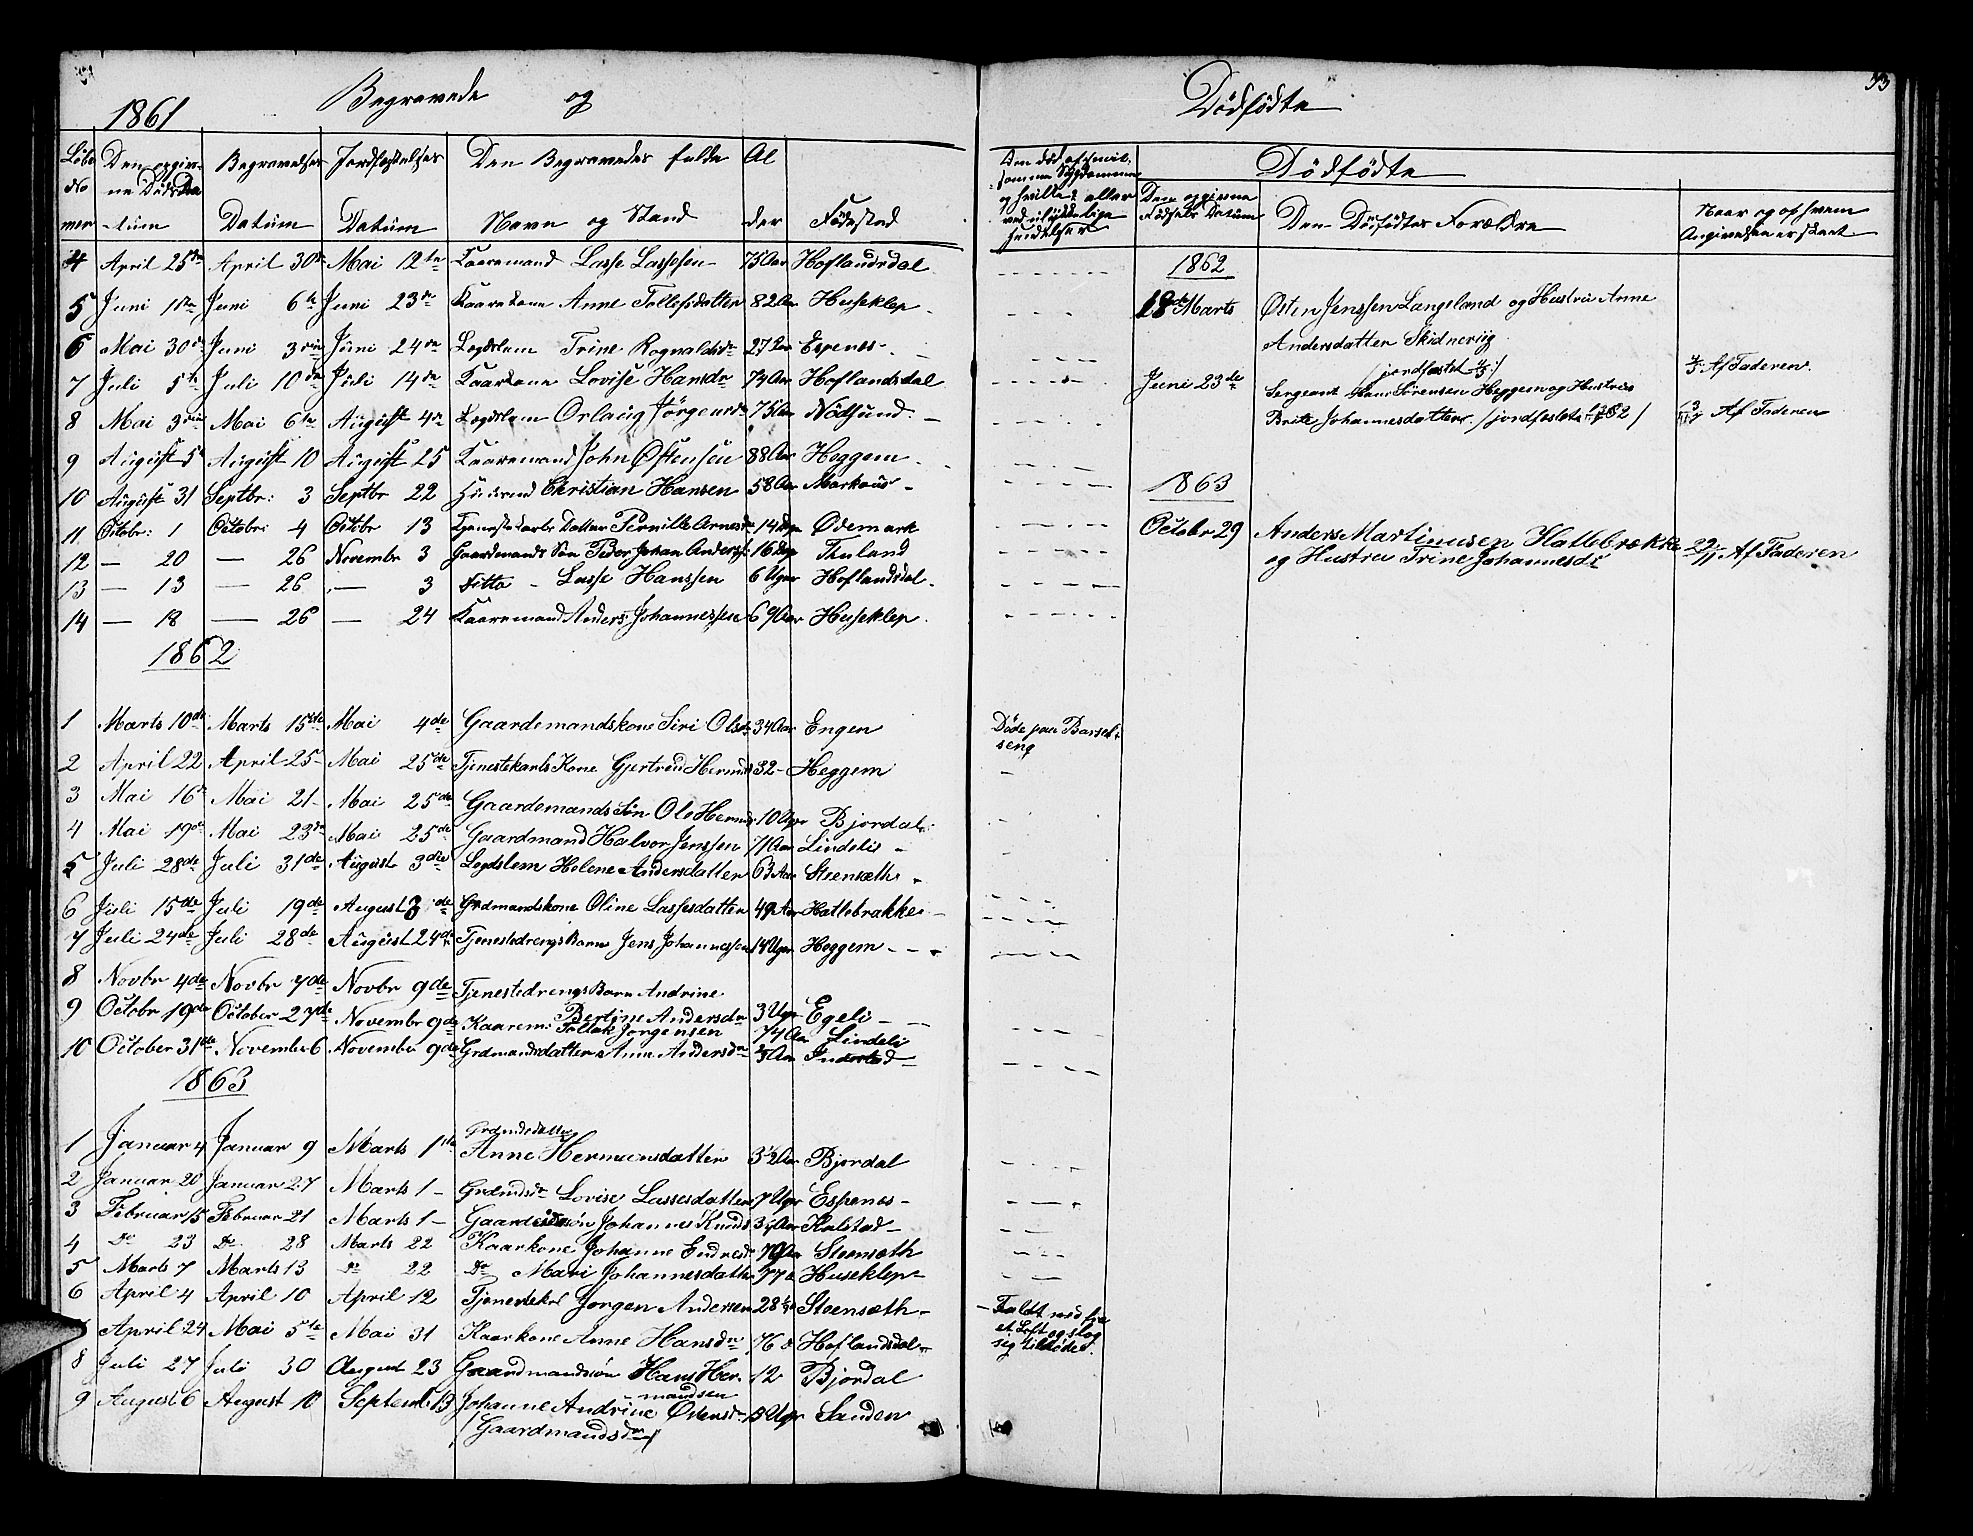 33
1861 Begravede og Dødfødte
Løbe No mer | Den opgivne Døds Datum | Begravelses Datum | Jordfæstelses Datum | Den Begravedes fulde Navn og Stand | Alder | Fødested | Dødfødte | Den opgivne Fødsels Datum | Den Dødfødtes Forældre | Naar og af hvem Angivelsen er skeet
4 April 25de April 30te Mai 12te Kaaremand Lasse Lassesen 75 Aar Hoflandsdal
5 Juni 1ste Juni 6te Juni 23de Kaarekone Anne Tollefsdatter 82 Aar Huseklep
6 Mai 30te Juni 3die Juni 24de Legdslem Trine Rognaldsdr 27 Aar Espenes
7 Juli 5te Juli 10de Juli 14de Kaarkone Lovise Hansdr 74 Aar Hoflandsdal
8 Mai 3die Mai 6te August 4de Legdslem Orlaug Jørgensdr 75 Aar Nødsund
9 August 5 August 10 August 25 Kaaremand John Østensen 88 Aar Heggem
10 August 31 Septbr: 3 Septbr 22 Christian Hansen 58 Aar
11 Octobr: 1 Octobr: 4 Octbr 13 Tjenestekarls Datter Pernille Arnesdr 14 Dage Ødemark
12 — 20 — 26 Novembr 3 Gaardmands Søn Peder Johan Anders: 16 Dage Tuland
13 — 13 — 26 — 3 Ditto — Lasse Hanssen 6 Uger Hoflandsdal
14 — 18 — 26 — 24 Kaaremand Anders Johannessen Aar Huseklep
1862
1 Marts 10de Marts 15de Mai 4de Gaardemandskone Siri Olsdr 34 Aar Engen Døde paa Barsel-
seng
2 April 22 April 25 Mai 25de Tjenestekarls Kone Gjertrud Hermds 32 Heggem
3 Mai 16de Mai 21 Mai 25de Gaardemands Søn Ole Herm 10 Uger Bjordal
4 Mai 19de Mai 23de Mai 25de Gaardmand Halvor Jenssen 71 Aar Lindeli
5 Juli 28de Juli 31de August 3die Legdslem Helene Andersdatter 63 Aar Steensæth
6 Juli 15de Juli 19de August 3de Grdmandskone Oline Lassesdatter 49 Aar Hatlebrække
7 Juli 24de Juli 28de August 24de Tjenestedrengs Barn Jens Johannessen 14 Uger Heggem
8 Novbr 4de Novbr 7de Novbr 9de Tjenestedrengs Barn Andrine
Bertine Andersdr 3 Uger Egeli
9 Octobr 19de October 27de Novembr 9de Kaarem: Tollak Jørgensen 74 Aar Lindeli
10 October 31de November 6 November 9de Grdmandsdatter Anne Andersdr Aar Indrestad
1863
1 Januar 4 Januar 9 Marts 1ste Grdmdsdatter
Anne Hermundsdatter 3½ Aar Bjordal
2 Januar 20 Januar 27 Marts 1 Grdmdsdr Lovise Lassesdatter 7 Uger Espenes
3 Februar 15 Februar 21 Marts 1 Gaardmdssøn Johannes Knuds Aar Kalstad
4 Do 23 Do 28 Marts 22 Kaarkone Johanne Endresdr 70 Aar Steensæth
5 Marts 7 Marts 13 Do 22 Do Mari Johannesdatter 77 a Huseklep
6 April 4 April 10 April 12 Tjenestekarl Jørgen Andersen 28 Steensæth Faldt ned fra
et Loft og slog
sig tildøde.
April 24 Mai 5te Mai 31 Kaarkone Anne Hansdr 76 a Hoflandsdal
8 Juli 27 Juli 30 August 23 Gaardmandssøn Hans Her-
mundsen 12 Bjordal
9 August 6 August 10 Septemb 13 Johanne Andrine Østensdr 15 Uger Sanden
(Gaardmandsdr)
1862
18de Marts Østen Jenssen Langeland og Hustru Anne
Andersdatter Skidneriig
/jordfæstet /: Af Faderen
Juni 23de Sergeant Hans Sørensen Heggem og Hustru
Brite Johannesdatter /jordfæstet / Af Faderen
1863
Octobr 29 Anders Martinusen Hatlebrække
og Hustru Trine Johannesdr 22/11 Af Faderen